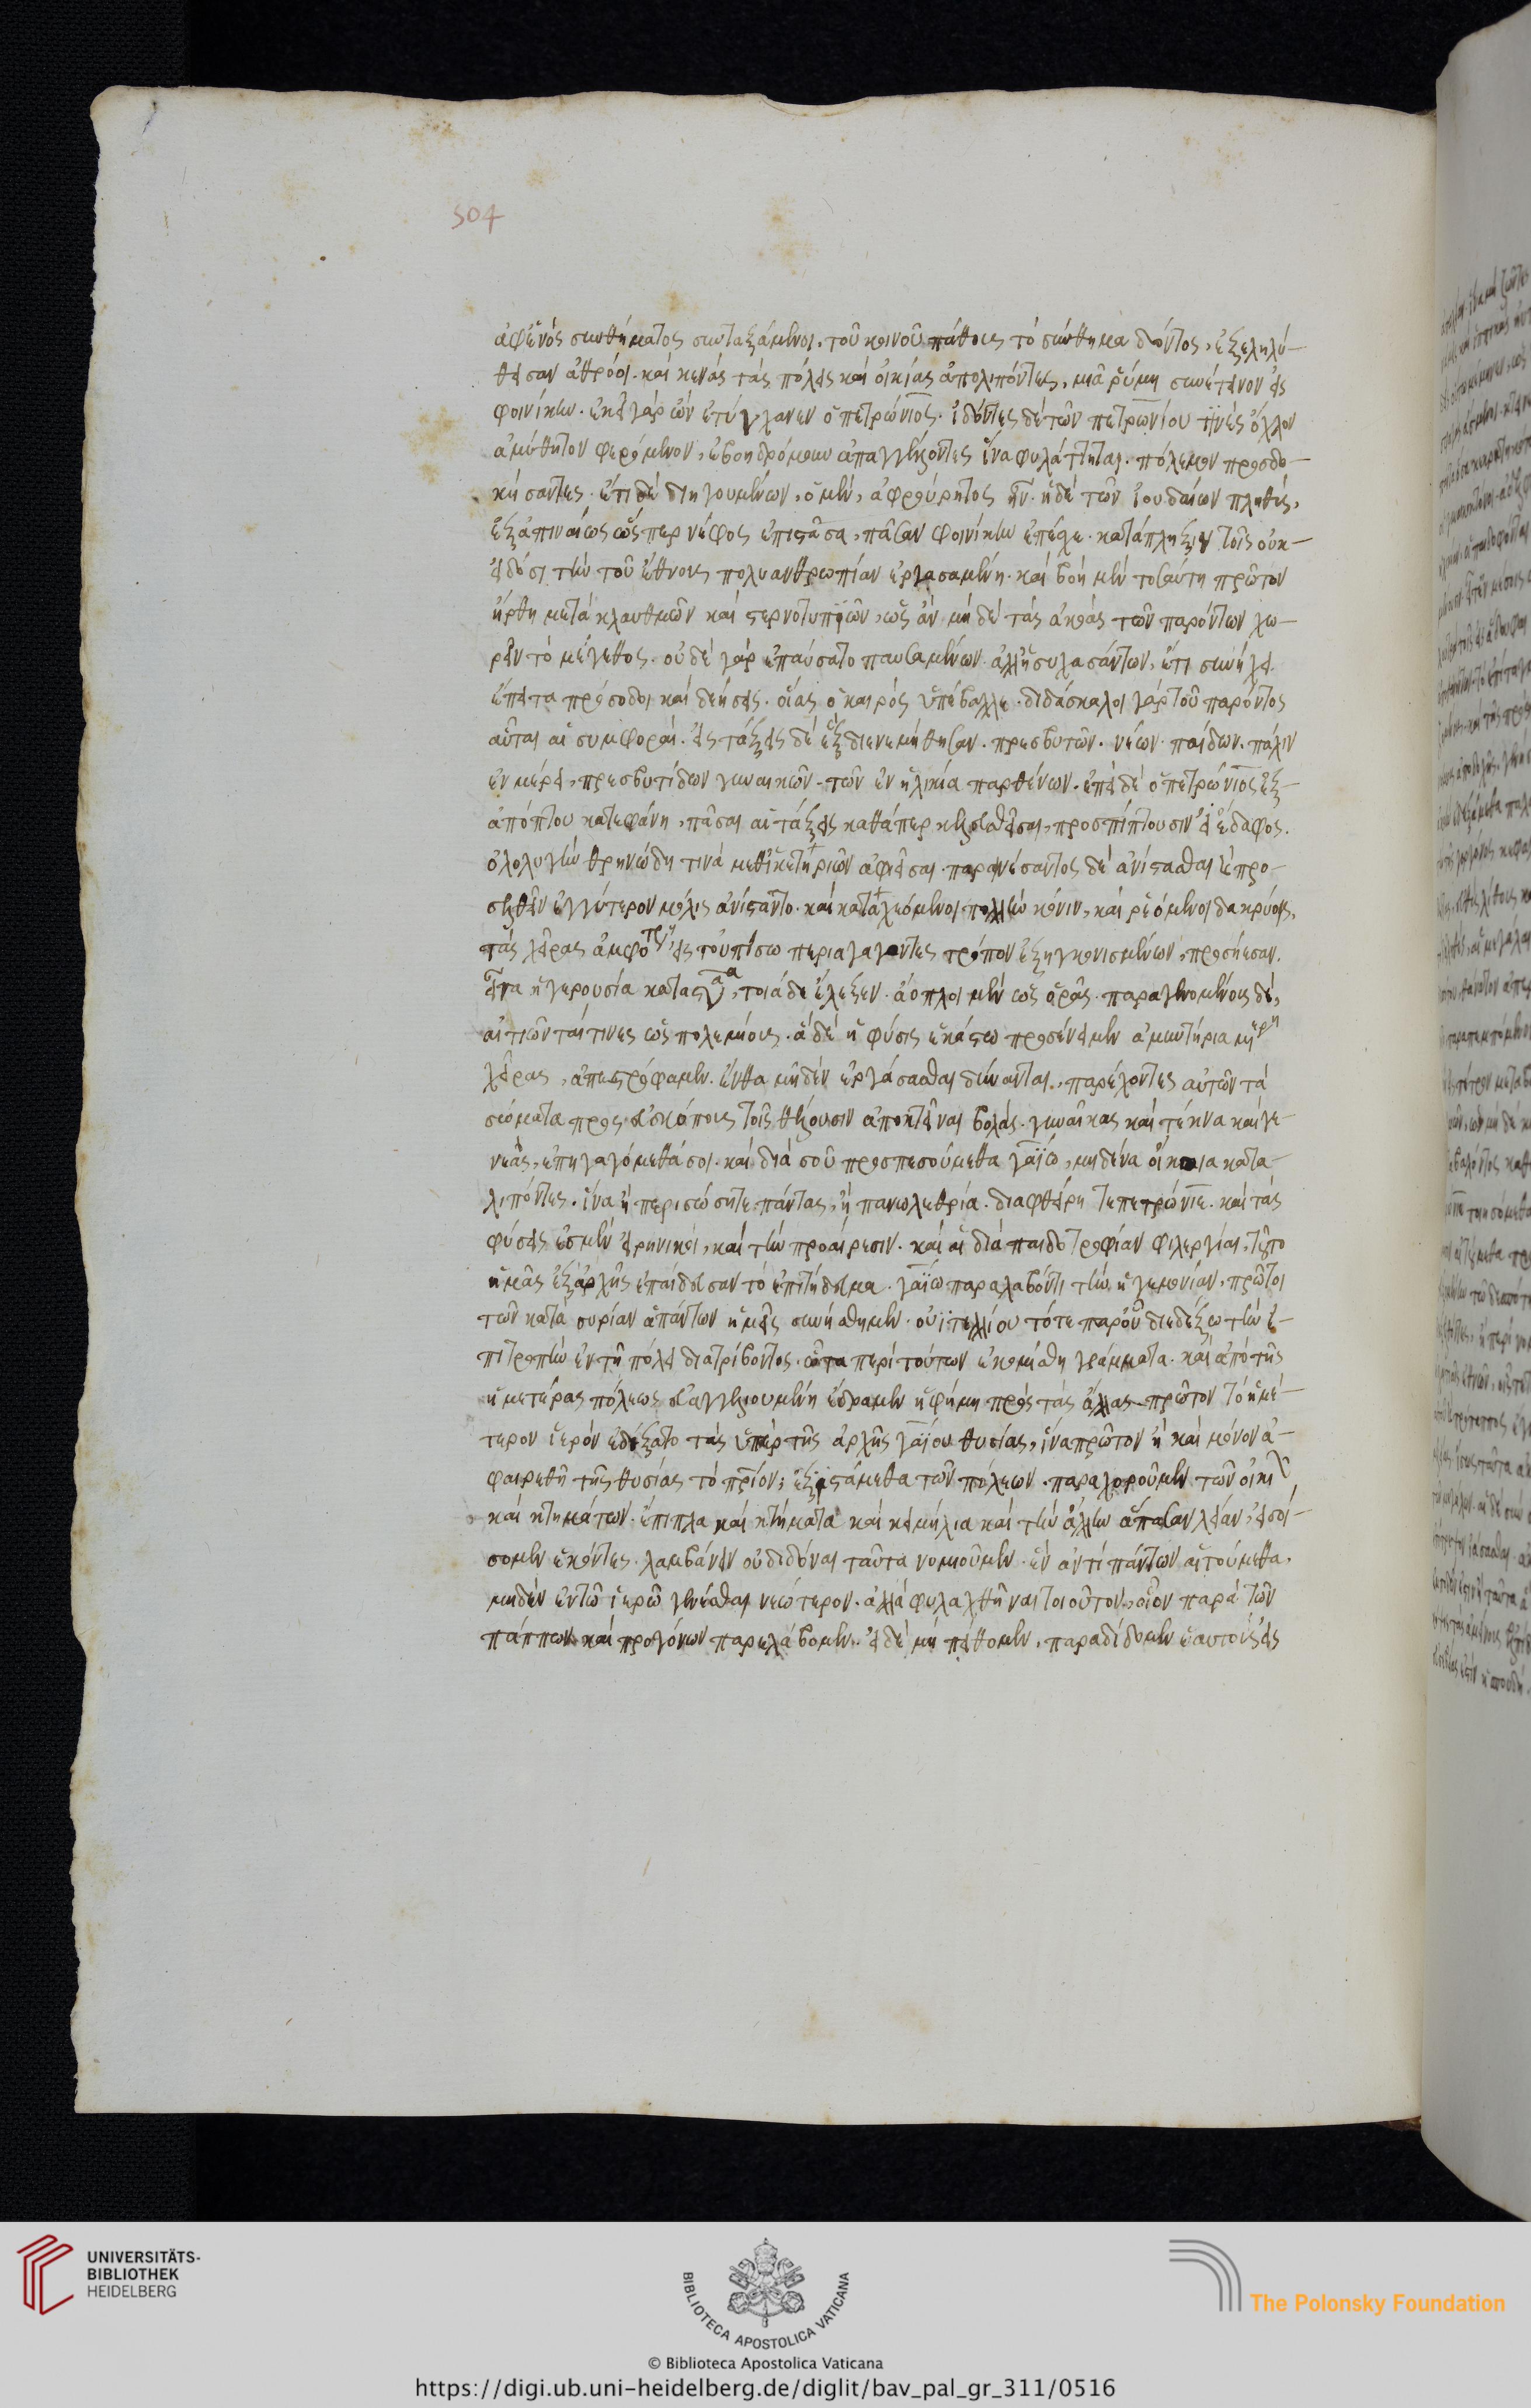 504
ἀφἑνὸς συνθήματος συνταξάμενοι, τοῦ κοινοῦ πάθους τὸ σύνθημα δόντος, ἐξεληλύ-
θεισαν ἀθρόοι. καὶ κενὰς τὰς πόλεις καὶ οἰκίας ἀπολιπόντες, μιᾷ ῥύμη συνέτεινον εἰς
φοινίκην. ἐκεῖ γὰρ ὢν ἐτύγχανεν ὁ πετρώνιος. ἰδόντες δὲ τῶν πετρωνίου τινὲς ὄχλον
ἀμύθητον φερόμενον, ἐβοηδρόμουν ἀπαγγέλλοντες ἵνα φυλάττηται. πόλεμον προσδο-
κήσαντες. ἔτι δὲ διηγουμένων, ὁ μὲν, ἀφρούρητος ἦν. ἡ δὲ τῶν ἰουδαίων πληθὺς,
ἐξαπιναίως ὥσπερ νέφος ἐπιστᾶσα, πᾶσαν φοινίκην ἐπέσχε. κατάπληξιν τοῖς οὐκ-
εἰδόσι τὴν τοῦ ἔθνους πολυανθρωπίαν ἐργασαμένη. καὶ βοὴ μὲν τοσαύτη πρῶτον
ἤρθη μετὰ κλαυθμῶν καὶ στερνοτυπιῶν, ὡς ἂν μὴ δὲ τὰς ἀκοὰς τῶν παρόντων χω-
ρεῖν τὸ μέγεθος. οὐδὲ γὰρ ἐπαύσατο παυσαμένων. ἀλλ ἡσυχασάντων, ἔτι συνήχει.
ἔπειτα πρόσοδοι καὶ δεήσεις. οἵας ὁ καιρὸς ὑπέβαλλε. διδάσκαλοι γὰρ τοῦ παρόντος
αὗται αἱ συμφοραί. εἰς τάξεις δὲ ἓξ διενεμήθησαν. πρεσβυτῶν. νέων. παίδων. πάλιν
ἐν μέρει, πρεσβυτίδων γυναικῶν. τῶν ἐν ἡλικία παρθένων. ἐπεὶ δὲ ὁ πετρώνιος ἐξ-
ἀπόπτου κατεφάνη, πᾶσαι αἱ τάξεις καθάπερ κελευσθεῖσαι, προσπίπτουσιν εἰς ἔδαφος.
ὀλολυγὴν θρηνώδη τινὰ μεθ ἱκετηριῶν ἀφιεῖσαι. παραινέσαντος δὲ ἀνίστασθαι καὶ προ-
σελθεῖν ἐγγύτερον μόλις ἀνίσταντο. καὶ καταχεόμενοι πολλὴν κόνιν, καὶ ῥεόμενοι δακρύοις,
τὰς χεῖρας ἀμφοτέρας εἰς τοὐπίσω περιαγαγόντες τρόπον ἐξηγκωνισμένων, προσήεσαν.
εἶτα ἡ γερουσία καταστᾶσα, τοιάδε ἔλεξεν. ἄοπλοι μὲν ὡς ὁρᾷς. παραγενομένους δὲ,
αἰτιῶνταί τινες ὡς πολεμίους. ἃ δὲ ἡ φύσις ἑκάστω προσένειμεν ἀμυντήρια μέρη
χεῖρας, ἀπεστρόφαμεν. ἔνθα μηδὲν ἐργάσασθαι δύνανται, παρέχοντες αὐτῶν τὰ
σώματα προς εὐσκόπους τοῖς θέλουσιν ἀποκτεῖναι βολάς. γυναῖκας καὶ τέκνα καὶ γε-
νεὰς, ἐπηγαγόμεθά σοι. καὶ διὰ σοῦ προσπεσούμεθα γαΐω, μηδένα οἴκοι κατα-
λιπόντες. ἵνα ἢ περισώσητε πάντας, ἢ πανωλεθρία. διαφθείρητε πετρώνιε. καὶ τὰς
φύσεις ἐσμὲν εἰρηνικοὶ, καὶ τὴν προαίρεσιν. καὶ αἱ διὰ παιδοτροφίαν φιλεργίαι, τοῦτο
ἡμᾶς ἐξ ἀρχῆς ἐπαίδευσαν τὸ ἐπιτήδευμα. γαΐω παραλαβόντι τὴν ἡγεμονίαν, πρῶτοι
τῶν κατὰ συρίαν ἁπάντων ἡμεῖς συνήσθημεν. οὐϊτελλίου τότε παρ οὗ διεδέξω τὴν ἐ-
πιτροπὴν ἐν τῇ πόλει διατρίβοντος. ὧτα περὶ τούτων ἐκομίσθη γράμματα. καὶ ἀπὸ τῆς
ἡμετέρας πόλεως εὐαγγελιουμένη ἔδραμεν ἡ φήμη πρὸς τὰς ἄλλας. πρῶτον τὸ ἡμέ-
τερον ἱερὸν ἐδέξατο τὰς ὑπὲρ τῆς ἀρχῆς γαΐου θυσίας, ἵνα πρῶτον ἢ καὶ μόνον ἀ-
φαιρεθῇ τῆς θυσίας τὸ πριον; ἐξιστάμεθα τῶν πόλεων. παραχωροῦμεν τῶν οἰκιῶν
καὶ κτημάτων. ἔπιπλα καὶ κτήματα καὶ κειμήλια καὶ τὴν ἄλλην ἅπασαν λείαν, εἰσοί-
σομεν ἑκόντες. λαμβάνειν οὐ διδόναι ταῦτα νομιοῦμεν. ἓν ἀντὶ πάντων αἰτούμεθα,
μηδὲν ἐν τῶ ἱερῶ γενέσθαι νεώτερον. ἀλλὰ φυλαχθῆναι τοιοῦτον, οἷον παρὰ τῶν
πάππων καὶ προγόνων παρελάβομεν. εἰ δὲ μὴ πείθομεν, παραδίδομεν ἑαυτοὺς εἰς
UNIVERSITÄTS-
BIBLIOTHEK
HEIDELBERG
BIBLIOTECA APOSTOLICA VATICANA
The Polonsky Foundation
© Biblioteca Apostolica Vaticana
https://digi.ub.uni-heidelberg.de/diglit/bav_pal_gr_311/0516